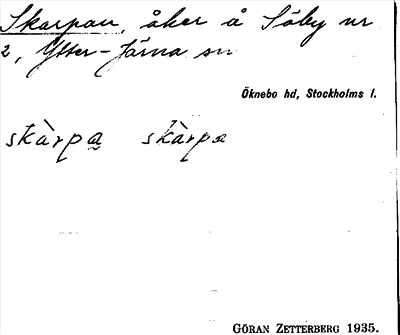 Skarpan, åker å Söby nr
2, Ytter-Järna sn
Öknebo hd, Stockholms l.
skàrpa skàrpa
GÖRAN ZETTERBERG 1935.